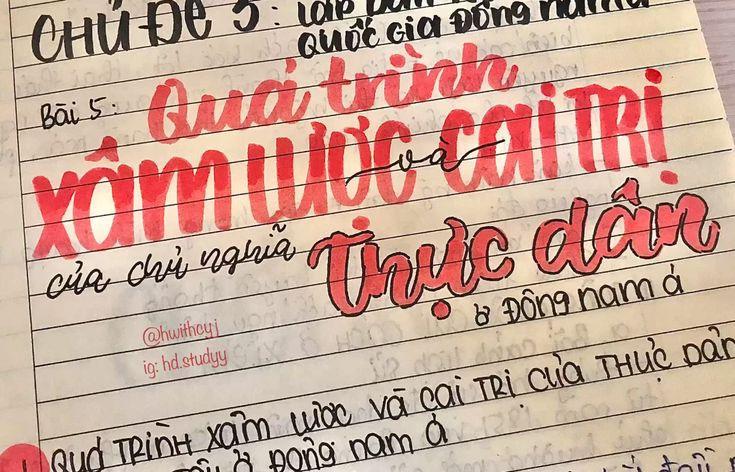 CHỦ ĐỀ 5:
QUỐC GIA ĐÔNG NAM Á
Bài 5: Quá trình
XÂM LƯỢC và CAI TRỊ
của chủ nghĩa Thực dân
ở ĐÔNG NAM Á
@hwithcyj
ig: hd.studyy
QUÁ TRÌNH XÂM LƯỢC VÀ CAI TRỊ CỦA THỰC DÂN
Ở ĐÔNG NAM Á